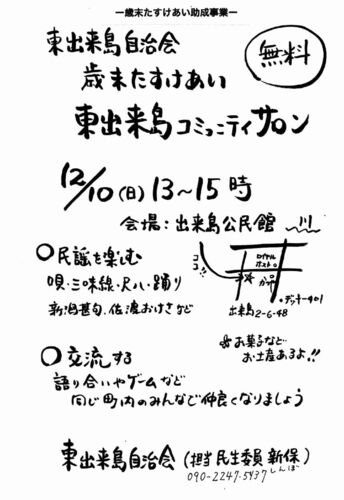 ー歳末たすけあい助成事業ー
東出来島自治会
無料
歳末たすけあい
東出来島コミュニティサロン
12/10(日)13～15時
会場:出来島公民館
川
ココ!!
ロイヤルホスト
ガスト
デッキー401
出来島2-6-48
○民謡を楽しむ
唄・三味線・尺八・踊り
新潟甚句、佐渡おけさなど
お菓子など
お土産あるよ!!
○交流する
語り合いやゲームなど
同じ町内のみんなで仲良くなりましょう
東出来島自治会(担当 民生委員 新保)
しんぼ
090-2247-5437